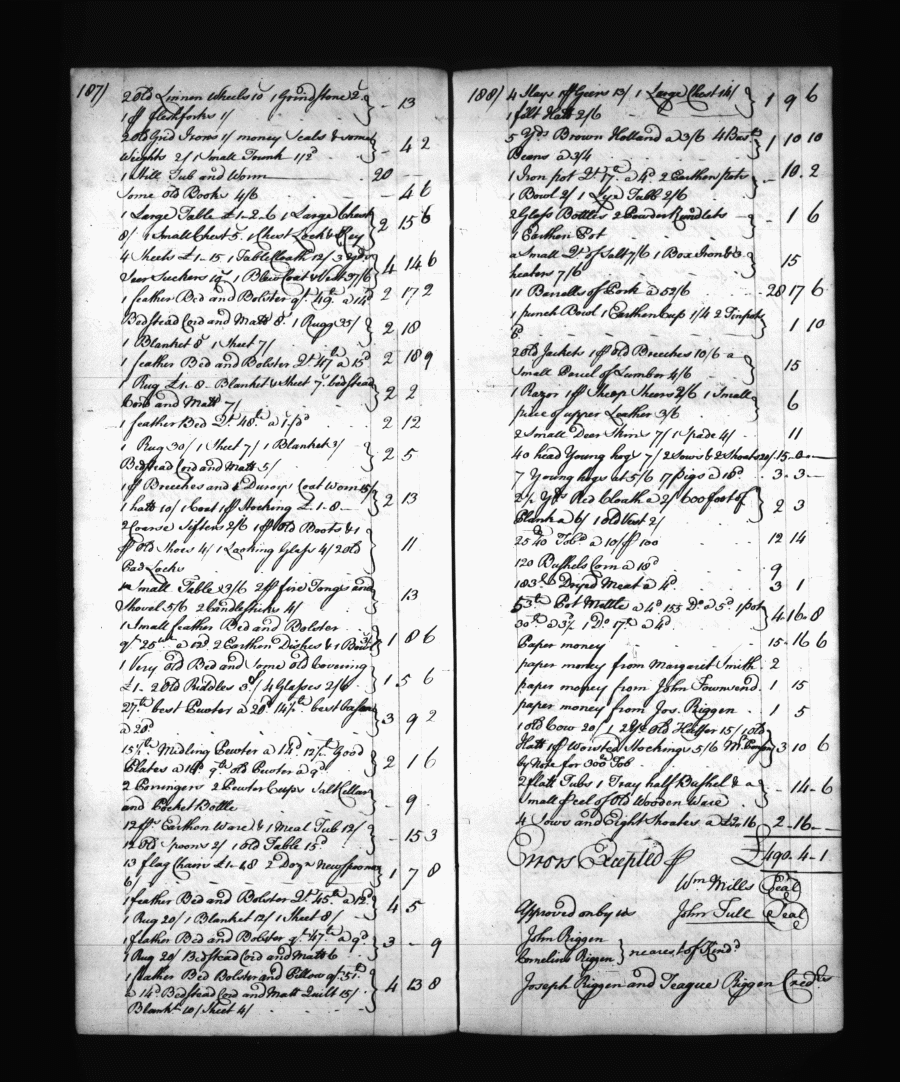 187)
2 Old Linnen Wheels 10 1 Grindstone 2
1 pr fleshforks 1/ - 13
2 old Grid Irons 1/ money Scals & some
Weights 2/ 1 Small Trunk 1/2d - 4 2
1 Still Tub and Worm 20 -
Some old Books 4/6 - 4 6
1 Large Table £1-2-6 1 Large Chest
8/ 1 Small Chest 5. 1 Chest Lock & Key 2 15 6
4 Sheets £1-15 1 Tablecloath 12/ 3 yds
Seersuckers 10/ 1 Blew Coat & Vest 37/6 4 14 6
1 feather Bed and Bolster qt. 49 a 14d 2 17 2
Bedstead Cord and Matt 8. 1 Rugg 35/
1 Blanket 8 1 Sheet 7/ 2 18
1 feather Bed and Bolster Qt. 47 a 15d 2 18 9
1 Rug £1-8- Blanket & Sheet 7. bedstead
Cord and Matt 7/ 2 2
1 feather Bed Qt. 48 a 2 12
1 Rug 30/ 1 Sheet 7/ 1 Blanket 3/
Bedstead Cord and Matt 5/ 2 5
1 pr Breeches and Duroys Coat Worn 15/
1 hatt 10/ 1 Coat 1 pr Stocking £1-8- 2 13
2 Coarse Sifters 2/6 1 pr old Boots & 1
pr old Shoes 4/ 1 Looking Glass 4/ 2 old
Pad Locks 11
1 Small Table 3/6 2 pr fire Tongs and
Shovel 5/6 2 Candlesticks 4/ 13
1 Small feather Bed and Bolster
qt. 25 a 12d. 2 Earthen Dishes & 1 Bowl 1 8 6
1 Very old Bed and Some old Covering
£1- 2 Old Riddles 3/ 4 Glasses 2/6 1 5 6
27 best Pewter a 20d 14 best bason
a 20d 3 9 2
15 Midling Pewter a 14d 12 Good
Plates a 9 old Pewter a 9d. 2 1 6
2 Porringers 2 Pewter Cups Salt Cellar
and Pocket Bottle - 9
12 Earthen Ware & 1 Meal Tub 12/
12 Old Spoons 2/ 1 old Table 15d - 15 3
13 flag Chairs £1-1.8 2 Dozn new spoons
6/ 1 7 8
1 feather Bed and Bolster Qt. 45 a 12d
1 Rug 20/ 1 Blanket 12/ 1 Sheet 8/ 4 5
1 feather Bed and Bolster qt. 47 a 9d
1 Rug 20/ Bedstead Cord and Matt 6 3 - 9
1 feather Bed Bolster and Pillow qt. 51
a 14d. Bedstead Cord and Matt Quilt 15/
Blankt 10/ Sheet 4/ 4 13 8
188) 4 Stays 1 pr Geers 13/ 1 Large Chest 14/
1 felt Hatt 2/6 1 9 6
5 Yds Brown Holland a 3/6 4 Bast
Beans a 3/4 1 10 10
1 Iron pot Qt. 17 a 4d 2 Earthen pots
1 Bowl 2/ 1 Lye Tubb 2/6 - 10.2
2 Glass Bottles 2 Powder Rundlets
1 Earthen Pot - 1 6
a Small Qt. of Salt 7/6 1 Box Iron & 3
heaters 7/6 15
11 Barrells of Pork a 52/6 28 17 6
1 punch Bowl 1 Earthen Cup 1/4 2 Tin pots
6d 1 10
2 old Jackets 1 pr old Breeches 10/6 a
Small Parcel of Lumber 4/6 15
1 Razor 1 pr Sheep Sheers 2/6 1 Small
piece of upper Leather 3/6 6
2 Small Deer Skins 7/ 1 Spade 4/ 11
40 head Young hogs 7/ 2 Sows & 2 Shoats 20/ 15-0-
7 Young hogs at 5/6 17 pigs a 18d 3-3-
2½ Yds Red Cloath a 2/ 600 foot of
Plank a 6/ 1 old Vest 2/ 2 3
2540 Tobo a 10/ pr 100 12 14
120 Bushels Corn a 18d 9
183 Dryed Meat a 4d 3 1
53 Pot Mettle a 4d. 155 Do a 5d 1 pot
30 a 3½ 1 Do 17 a 4d. 4-16-8
Paper money 15-16 6
paper money from Margaret Smith 2
paper money from John Townsend 1 15
paper money from Jos. Riggen 1 5
1 old Cow 20/ 1 2 Yr old Heiffer 15/ 1 old
Hatt 1 pr Worsted Stockings 5/6
by Note for 300 Tob 3 10 6
2 flatt Tubs 1 Tray half Bushel & a
Small pcel of Old Wooden Ware - 14-6
4 Sows and Eight Shoates a £2-16 2-16-
Errors Excepted pr £490-4-1
Wm Mills (Seal)
Approved on by us John Tull (Seal)
John Riggen
Cornelius Riggen } nearest of Kind
Joseph Riggen and Teague Riggen Credrs